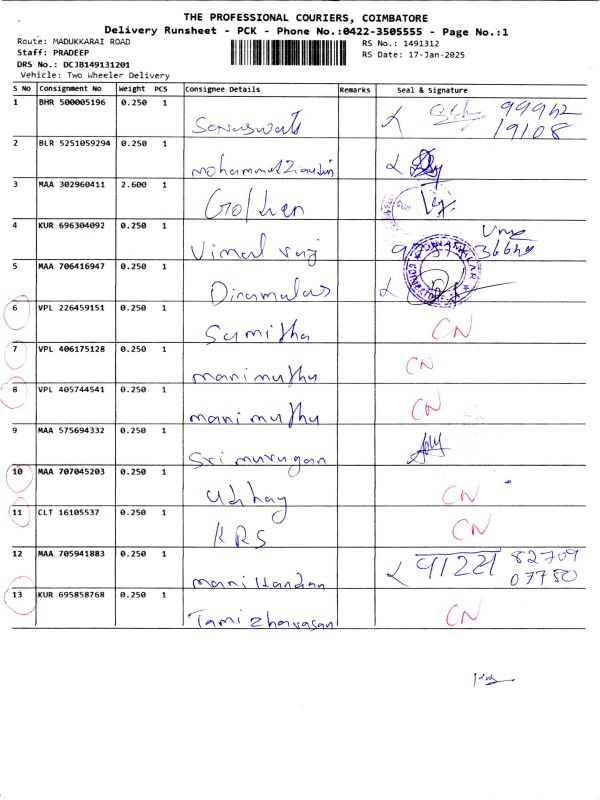 THE PROFESSIONAL COURIERS, COIMBATORE
Delivery Runsheet - PCK - Phone No.:0422-3505555 - Page No.:1
Route: MADUKKARAI ROAD
RS No.: 1491312
Staff: PRADEEP
RS Date: 17-Jan-2025
DRS No.: DCJB149131201
Vehicle: Two Wheeler Delivery
S No Consignment No Weight PCS Consignee Details Remarks Seal & Signature
1 BHR 500005196 0.250 1
2 BLR 5251059294 0.250 1
3 MAA 302960411 2.600 1
4 KUR 696304092 0.250 1 Vimal raj
5 MAA 706416947 0.250 1
6 VPL 226459151 0.250 1 Sumitha CN
7 VPL 406175128 0.250 1 manimuthu CN
8 VPL 405744541 0.250 1 manimuthu CN
9 MAA 575694332 0.250 1 Sri murugan
10 MAA 707045203 0.250 1 CN
11 CLT 16105537 0.250 1 KRS CN
12 MAA 705941883 0.250 1 manikandan 82709
07780
13 KUR 695858768 0.250 1 Tamizhavasan CN